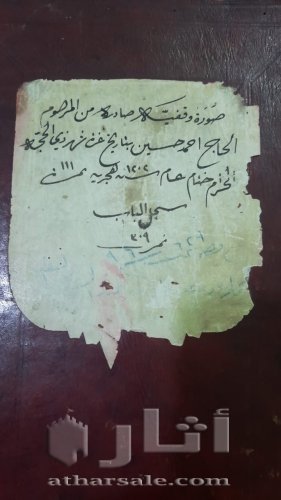 صورة وقفية صادرة من المرحوم
الحاج احمد حسين بتاريخ غرة شهر ذي الحجة
الحرم ختام عام ١٢٠٢ الهجرية نمرة ١١١
سجل الباب
نمرة ٣٠٩
أثار
atharsale.com